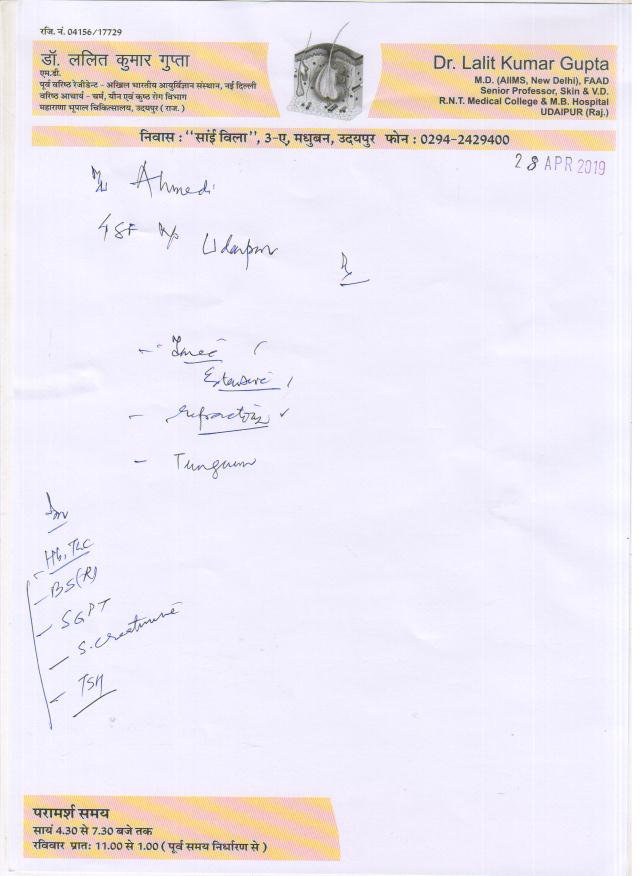 रजि. नं. 04156/17729
डॉ. ललित कुमार गुप्ता
एम.डी.
पूर्व वरिष्ठ रेजीडेन्ट - अखिल भारतीय आयुर्विज्ञान संस्थान, नई दिल्ली
वरिष्ठ आचार्य - चर्म, यौन एवं कुष्ठ रोग विभाग
महाराणा भूपाल चिकित्सालय, उदयपुर ( राज. )
Dr. Lalit Kumar Gupta
M.D. (AIIMS, New Delhi), FAAD
Senior Professor, Skin & V.D.
R.N.T. Medical College & M.B. Hospital
UDAIPUR (Raj.)
निवास : "सांई विला", 3-ए, मधुबन, उदयपुर फोन : 0294-2429400
28 APR 2019
Ahmedi
48F Udaipur
Rx
Extensive
Tungum
Inv
Hb, TLC
BS(R)
SGPT
S. Creatinine
TSH
परामर्श समय
सायं 4.30 से 7.30 बजे तक
रविवार प्रातः 11.00 से 1.00 ( पूर्व समय निर्धारण से )